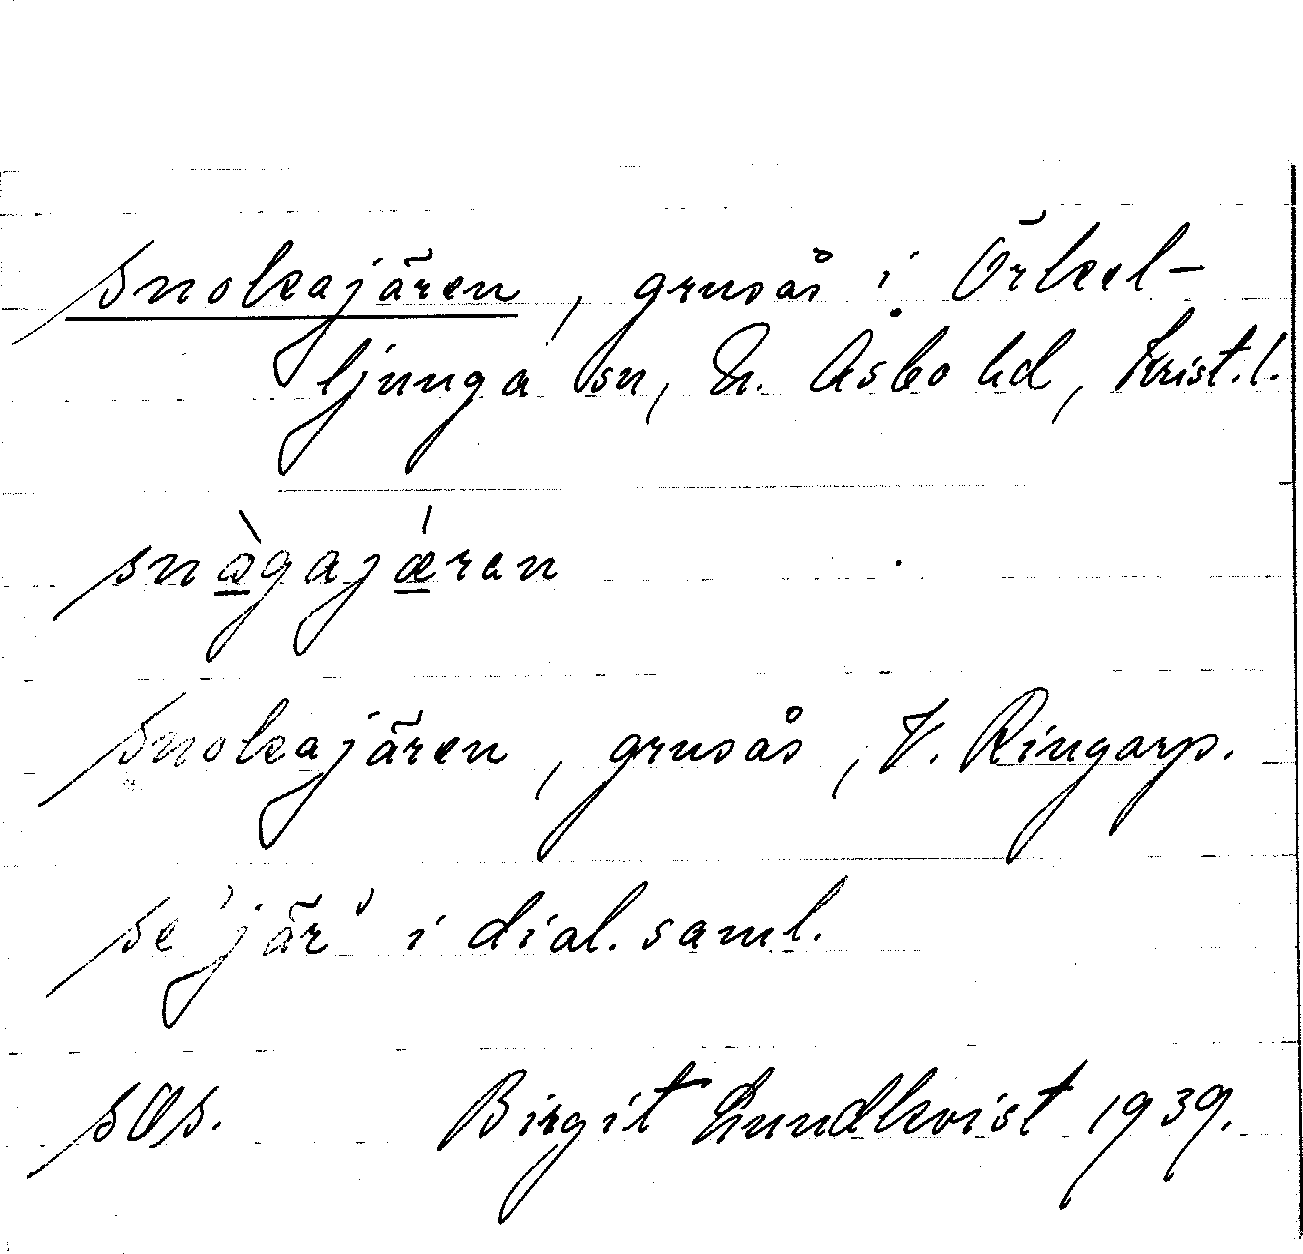 Snokajären, grusås i Örkel-
ljunga sn, N. Åsbo hd, Krist.l.
snàgajǽren
Snokajären, grusås, V. Ringarp.
Se 'jär' i dial. saml.
SOs. Birgit Lundkvist 1939.